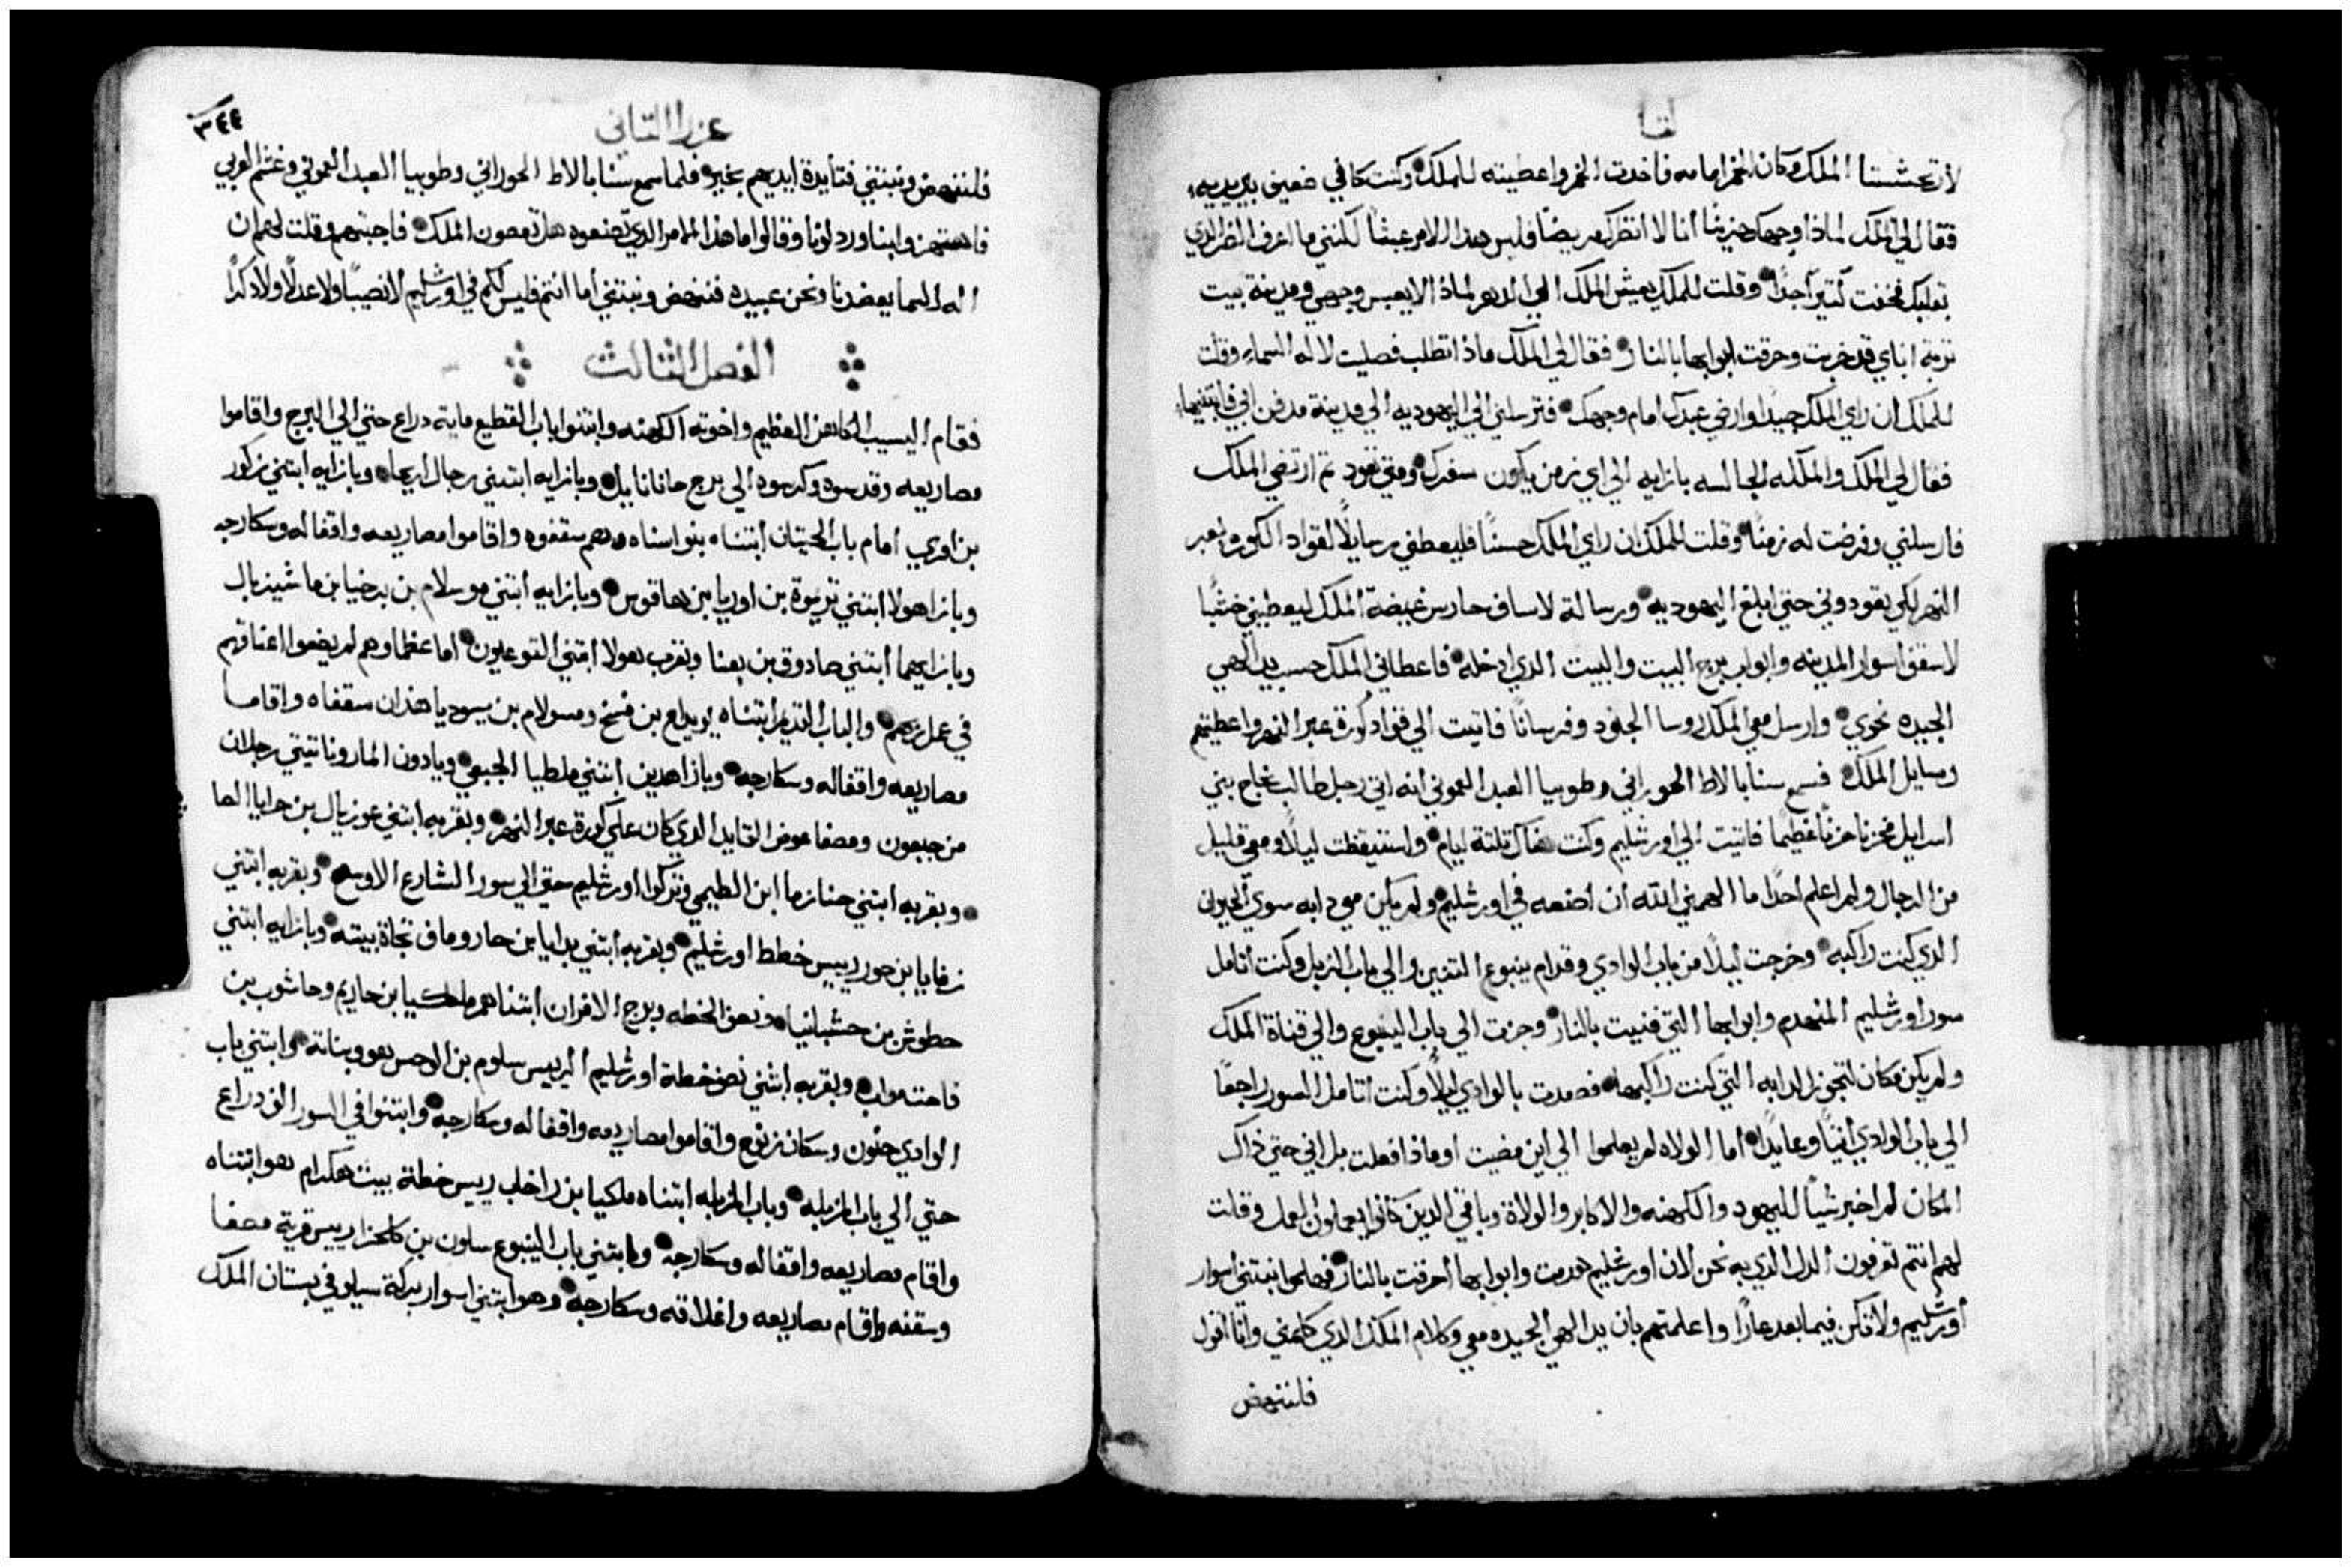 لارتحشستا الملك وكان الخمر امامه فاخدت الخمر واعطيته للملك وكنت كافي ضعيف بين يديه
فقال لي الملك لماذا وجهك حزينًا أنا لا انظرك مريضًا وليس هدا الامر عبثًا لكنني ما اعرف الضر الدي
بقلبك فخفت كتيرًا جدًا وقلت للملك يعيش الملك الي الدهر لماذا لا يعبس وجهي ومدينة بيت
تربة اباي قد خربت وحرقت ابوابها بالنار فقال لي الملك ماذا تطلب فصليت لاله السماء وقلت
للملك ان راي الملك جيدًا وارضي عبدك امام وجهك فترسلني الي اليهوديه الي مدينة مدفن ابي فابتنيها
فقال لي الملك والملكه الجالسه بازايه الي اي زمن يكون سفرك ومتي تعود تم ارتضي الملك
فارسلني وفرضت له زمنًا وقلت للملك ان راي الملك حسنًا فليعطني رسايلًا لقواد الكوره بعبر
النهر لكي يقودوني حتي ابلغ اليهوديه ورسالة لاساف حارس غيضة الملك ليعطيني خشبًا
لاسقف اسوار المدينه وابواب برج البيت والبيت الدي ادخله فاعطاني الملك حسب يد الهي
الجيده نحوي وارسل معي الملك روسا الجنود وفرسانًا فاتيت الي قواد كورة عبر النهر واعطيتهم
رسايل الملك فسمع سنابالاط الحوراني وطوبيا العبد العموني انه اتي رجل طالب نجاح بني
اسرايل فحزنا حزنًا عظيمًا فاتيت الي اورشليم وكنت هناك تلتة ايام واستيقظت ليلًا ومعي قليل
من الرجال ولم اعلم احدًا ما الهمني الله ان اصنعه في اورشليم ولم يكن معي دابه سوي الحيوان
الدي كنت راكبه وخرجت ليلًا من باب الوادي وقدام ينبوع التنين والي باب الزبل وكنت اتامل
سور اورشليم المنهدم وابوابها التي فنيت بالنار وجزت الي باب الينبوع والي قناة الملك
ولم يكن مكان لتجوز الدابه التي كنت راكبها فصعدت بالوادي ليلًا وكنت اتامل السور راجعًا
الي باب الوادي اتيًا وعايدًا أما الولاه لم يعلموا الي اين مضيت اوماذا فعلت بل اني حتي ذاك
المكان لم اخبر شيًا لليهود والكهنه والاكابر والولاة وباقي الدين كانوا يعملون العمل وقلت
لهم انتم تعرفون الدل الدي به نحن لان اورشليم هدمت وابوابها أحرقت بالنار فهلموا نبتني أسوار
أورشليم ولا نكن فيما بعد عارًا واعلمتهم بان يد الهي الجيده معي وكلام الملك الدي كلمني وانا اقول
فلننهض
عزرا التاني
٣٤٤
فلننهض ونبتني فتأيدة ايديهم بخير فلما سمع سنابالاط الحوراني وطوبيا العبد العموني وغشم العربي
فاستهزوا بنا وردلونا وقالوا ما هذا الامر الدي تصنعوه هل تعصون الملك فاجبتهم وقلت لهم ان
اله السما يعضدنا ونحن عبيده فننهض ونبتني أما انتم فليس لكم في اورشليم لا نصيبًا ولا عدلًا ولا دكرًا
الفصل الثالث
فقام اليسيب الكاهن العظيم واخوته الكهنه وابتنوا باب القطيع ماية دراع حتي الي البرج واقاموا
مصاريعه وقدسوه وكرسوه الي برج حانانايل وبازايه ابتني رجال اريحا وبازايه ابتني زكور
بن امري امام باب الحيتان ابتناه بنو اسناه وهم سقفوه واقاموا مصاريعه واقفاله وسكارجه
وبازا هولا ابتني تريموة بن اوريا بن هاقوس وبازايه ابتني موسلام بن برخيا بن ماشيزبال
وبازايهما ابتني صادوق بن بعنا وبقرب هولا ابتني التوعيون اما عظماوهم لم يضعوا اعناقهم
في عمل ربهم والباب القديم ابتناه يويداع بن فسخ ومسولام بن بسوديا هذان سقفاه واقاما
مصاريعه واقفاله وسكارجه وبازا هدين ابتني ملطيا الجبعي ويادون الماروناتيتي رجلان
من جبعون ومصفا عوض القايد الدي كان علي كورة عبر النهر وبقربه ابتني عوزيال بن حرايا الصا
وبقربه ابتني حنازما ابن الطيمي وتركوا اورشليم حتي الي سور الشارع الاوسع وبقربه ابتني
رفايا بن حور رييس خطط اورشليم وبقربه أبتني يدايا بن حاروماف تجاة بيته وبازايه ابتني
حطوش بن حشبانيا ونصف الخطه وبرج الافران ابتناهم ملكيا بن حاريم وحاشوب بن
فاحت مواب وبقربه ابتني نصف خطة اورشليم الرييس سلوم بن الوحس هو وبناته وابتني باب
الوادي حنون وسكان زنوع واقاموا مصاريعه واقفاله وسكارجه وابتنوا في السور الف دراع
حتي الي باب المزبله وباب المزبله ابتناه ملكيا بن راخاب رييس خطة بيت هكرام هو ابتناه
واقام مصاريعه واقفاله وسكارجه وابتني باب الينبوع سلون بن كلحزا رييس قرية مصفا
وسقفه واقام مصاريعه واغلاقه وسكارجه وهو ابتني اسوار بركة سيلو في بستان الملك